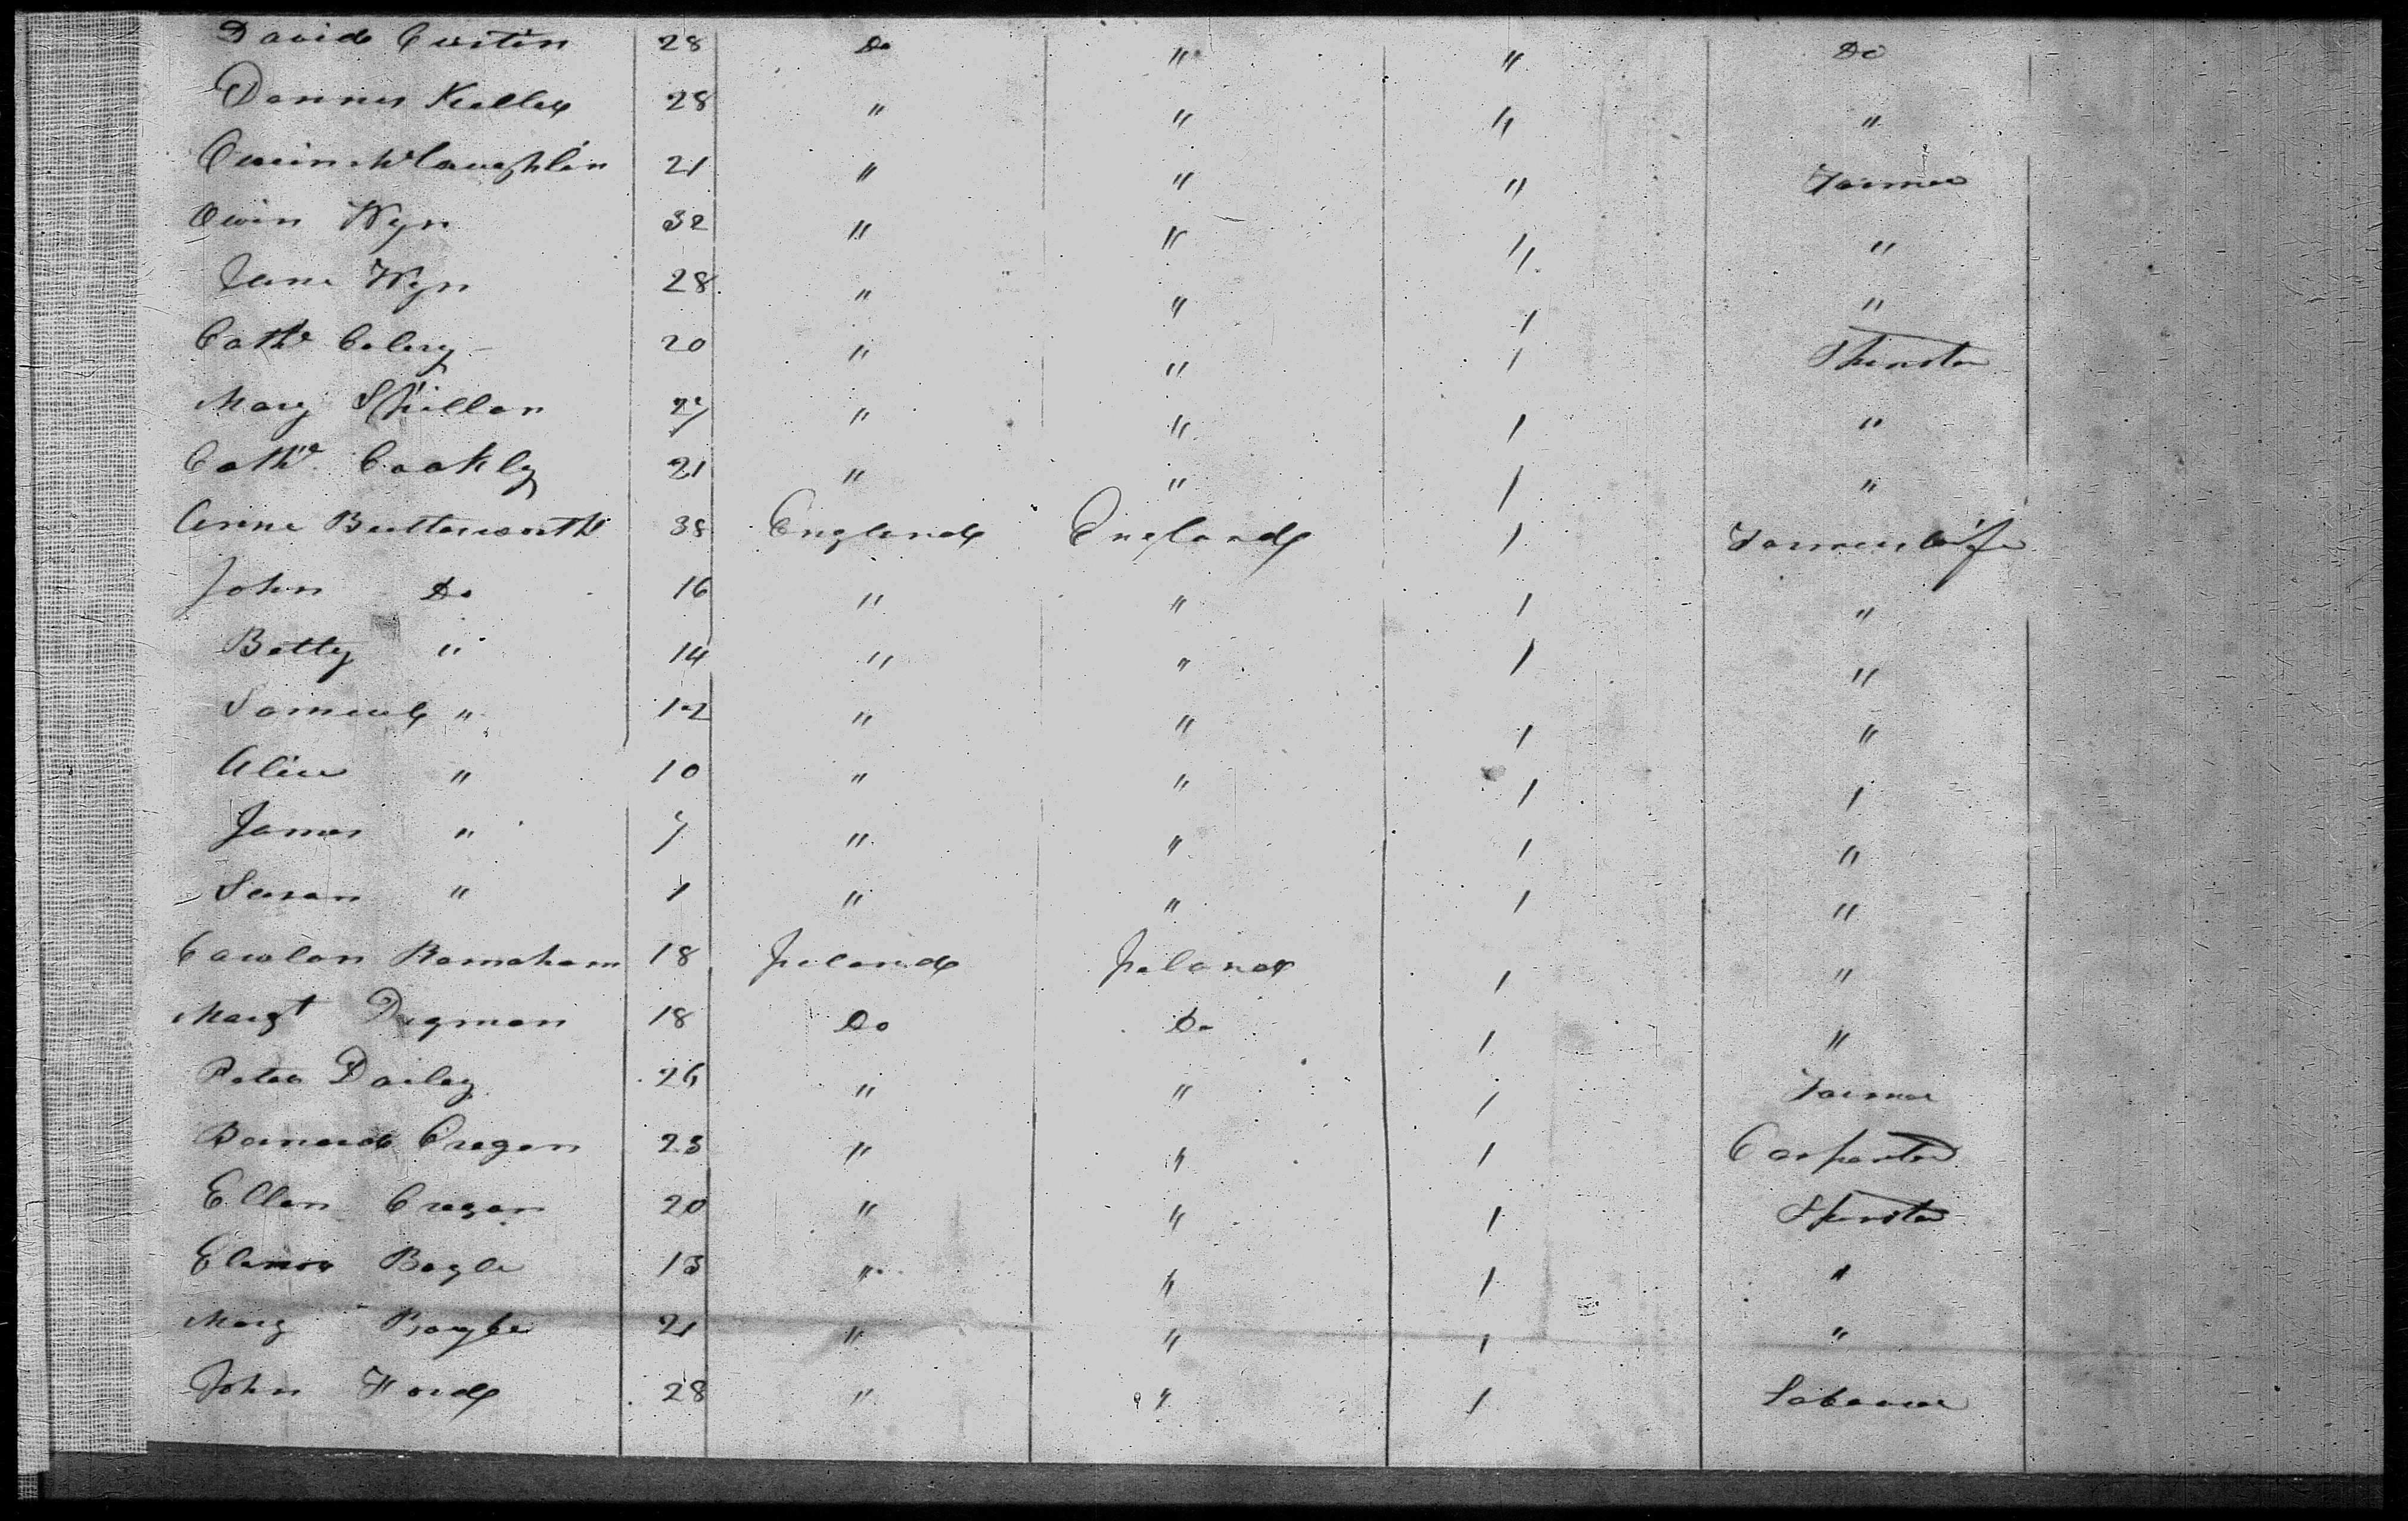 David Custin 28 Do " " Do
Dennis Kelley 28 " " " "
Owin McLaughlin 21 " " " Farmer
Owin Wyn 32 " " " "
Jane Wyn 28 " " / "
Cathe Colery 20 " " / Spinster
Mary Spillan 27 " " / "
Cathe Coakly 21 " " / "
Anne Butterworth 38 England England / Farmers Wife
John Do 16 " " / "
Betty " 14 " " / "
Samuel " 12 " " / "
Alice " 10 " " / /
James " 7 " " / "
Susan " 1 " " / "
18 Ireland Ireland / "
Margt Digman 18 Do Do / "
Peter Dailey 26 " " / Farmer
Bernard Cregan 23 " " / Carpenter
Ellen Cregan 20 " " / Spinster
Elenor Bogle 13 " " / "
Mary Boyle 21 " " / "
John Ford 28 " " / Labourer